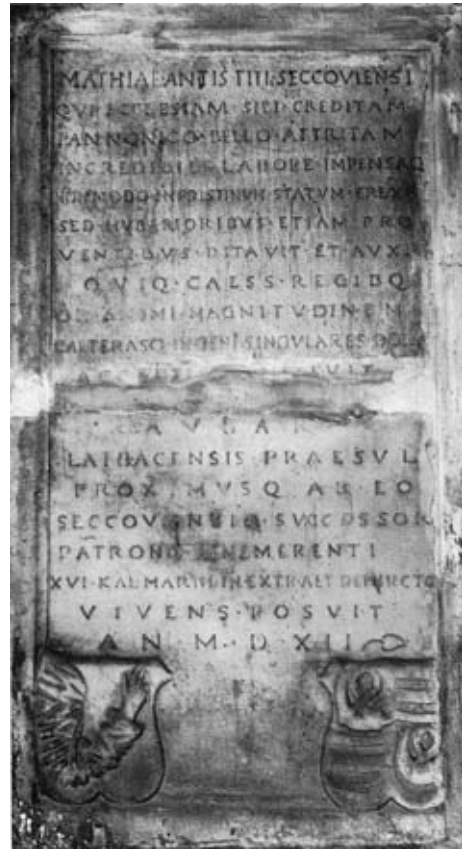 MATHIAE ANTISTITI·SECCOVIENSI
QVI ECCLESIAM SIBI·CREDITAM
PANNONICO·BELLO·ATTRITAM
INCREDIBILI·LABORE·IMPENSAQ
MODO·IN PRISTINVM·STATVM·EREXIT
SED·HVBERIORIBVS·ETIAM·PRO
VENTIBVS·DITAVIT·ET·AVX
QVIQ·CAESS·REGIBQ
OB·ANIMI·MAGNITVDINEM
CAETERASQ·INGENI·SINGVLARES
LAIBACENSIS PRAESVL
PROXIMVSQ AB EO
SECCOVIENSIS·SVCCESSOR
PATRONO·BENEMERENTI
XVI·KAL·MARTII·IN·EXTR·AET DEFVNCTO
VIVENS·POSVIT
AN M·D·XII